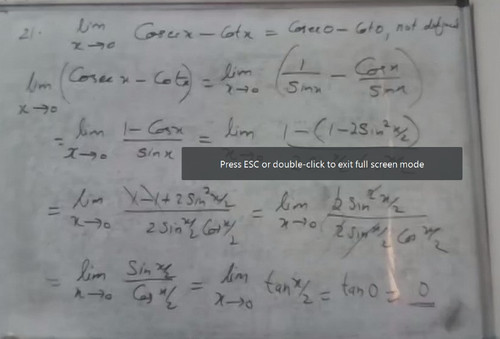 21. lim x→0 Cosec x - Cot x = Cosec 0 - Cot 0, not defined
lim x→0 (Cosec x - Cot x) = lim x→0 (1/Sin x - Cos x/Sin x)
= lim x→0 1 - Cos x/Sin x = lim x→0 1 - (1 - 2Sin² x/2)
Press ESC or double-click to exit full screen mode
= lim x→0 1 - 1 + 2Sin² x/2 / 2Sin x/2 Cos x/2 = lim x→0 2Sin² x/2 / 2Sin x/2 Cos x/2
= lim x→0 Sin x/2 / Cos x/2 = lim x→0 tan x/2 = tan 0 = 0